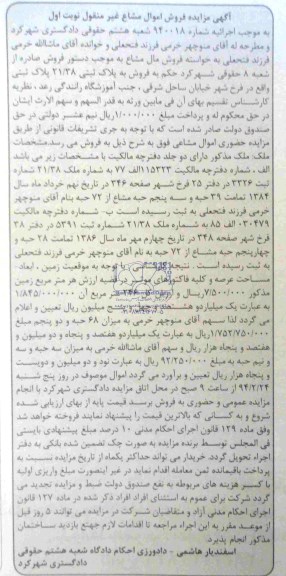 آگهی مزایده فروش اموال مشاع غیر منقول نوبت اول
به موجب اجرائیه شماره ۹۴۰۰۱۸ شعبه هشتم حقوقی دادگستری شهرکرد
و مطرحه له آقای منوچهر خرمی فرزند فتحعلی و خوانده آقای ماشااله خرمی
فرزند فتحعلی به خواسته فروش مال مشاع به موجب دستور فروش صادره از
شعبه ۸ حقوقی شهرکرد حکم به فروش به پلاک ثبتی ۲۱/۳۸ پلاک ثبتی
واقع در فرخ شهر خیابان ساحل شرقی ، جنب آموزشگاه رانندگی رعد ، نظریه
کارشناس تقسیم بهای آن فی مابین ورثه به قدر السهم و سهم الارث ایشان
در حق محکوم له و پرداخت مبلغ ۱/۰۰۰/۰۰۰ ریال نیم عشر دولتی در حق
صندوق دولت صادر شده است که با توجه به جری تشریفات قانونی از طریق
مزایده حضوری اموال مشاعی فوق به شرح ذیل به فروش می رسد.مشخصات
ملک: ملک مذکور دارای دو جلد دفترچه مالکیت با مشخصات زیر می باشد
الف . شماره دفترچه مالکیت ۱۱۵۳۲۳الف ۷۷ به شماره ملک ۲۱/۳۸ شماره
ثبت ۳۳۲۶ در دفتر ۲۵ فرخ شهر صفحه ۳۴۶ در تاریخ نهم خرداد ماه سال
۱۳۸۴ تمامت ۳۹ حبه و سه پنجم حبه مشاع از ۷۲ حبه بنام آقای منوچهر
خرمی فرزند فتحعلی به ثبت رسیده است ب- شماره دفترچه مالکیت
۰۳۰۴۷۹ الف ۸۵ به شماره ملک ۲۱/۳۸ شماره ثبت ۵۳۹۱ در دفتر ۳۸
فرخ شهر صفحه ۳۴۸ در تاریخ چهارم مهر ماه سال ۱۳۸۶ تمامت ۲۸ حبه و
چهارپنجم حبه مشاع از ۷۲ حبه به نام آقای منوچهر خرمی فرزند فتحعلی
به ثبت رسیده است . نتیجه کارشناسی : با توجه به موقعیت زمین ، ابعاد
مساحت عرصه و کلیه فاکتورهای موثر در قضیه ارزش هر متر مربع زمین
مذکور ۷/۵۰۰/۰۰۰ ریال و متر مربع آن ۱/۸۴۵/۰۰۰/۰۰۰
به عبارت یک میلیاردو هشتصد و چهل و پنج میلیون ریال تعیین و اعلام
می گردد لذا سهم آقای منوچهر خرمی به میزان ۶۸ حبه و دو پنجم مبلغ
۱/۷۵۲/۷۵۰/۰۰۰ریال به عبارت یک میلیاردو هفتصد و پنجاه و دو میلیون و
هفتصد و پنجاه هزار ریال و سهم آقای ماشااله خرمی به میزان سه حبه و سه
و نیم حبه به مبلغ ۹۲/۲۵۰/۰۰۰ ریال به عبارت نود و دو میلیون و دویست
و پنجاه هزار ریال تعیین و برآورد می گردد اموال موصوف در روز پنج شنبه
۹۴/۲/۲۴ از ساعت ۹ صبح در محل اتاق مزایده دادگستری شهرکرد با انجام
مزایده عمومی و حضوری به فروش برسد قیمت پایه از بهای ارزیابی شده
شروع و به کسانی که بالاترین قیمت را پیشنهاد نمایند فروخته خواهد شد
وفق ماده ۱۲۹ قانون اجرای احکام مدنی ۱۰ درصد مبلغ پیشنهادی بایستی
فی المجلس توسط برنده مزایده به صورت چک تضمین شده بانکی به دفتر
اجراء تحویل گردد. خریدار می تواند حداکثر یکماه از تاریخ مزایده نسبت به
پرداخت باقیمانده ثمن معامله اقدام نماید در غیر اینصورت مبلغ واریزی اولیه
با کسر هزینه های مربوطه به نفع صندوق دولت ضبط و مزایده تجدید می
گردد شرکت برای عموم به استثنای افراد افراد ذکر شده در ماده ۱۲۷ قانون
اجرای احکام مدنی آزاد و متقاضیان شرکت در مزایده می توانند ۵ روز قبل
از موعد مقرر به این اجراء مراجعه تا اقدامات لازم جهتع بازدید ساختمان
مذکور انجام پذیرد.
اسفندیار هاشمی - دادورزی احکام دادگاه شعبه هشتم حقوقی
دادگستری شهرکرد